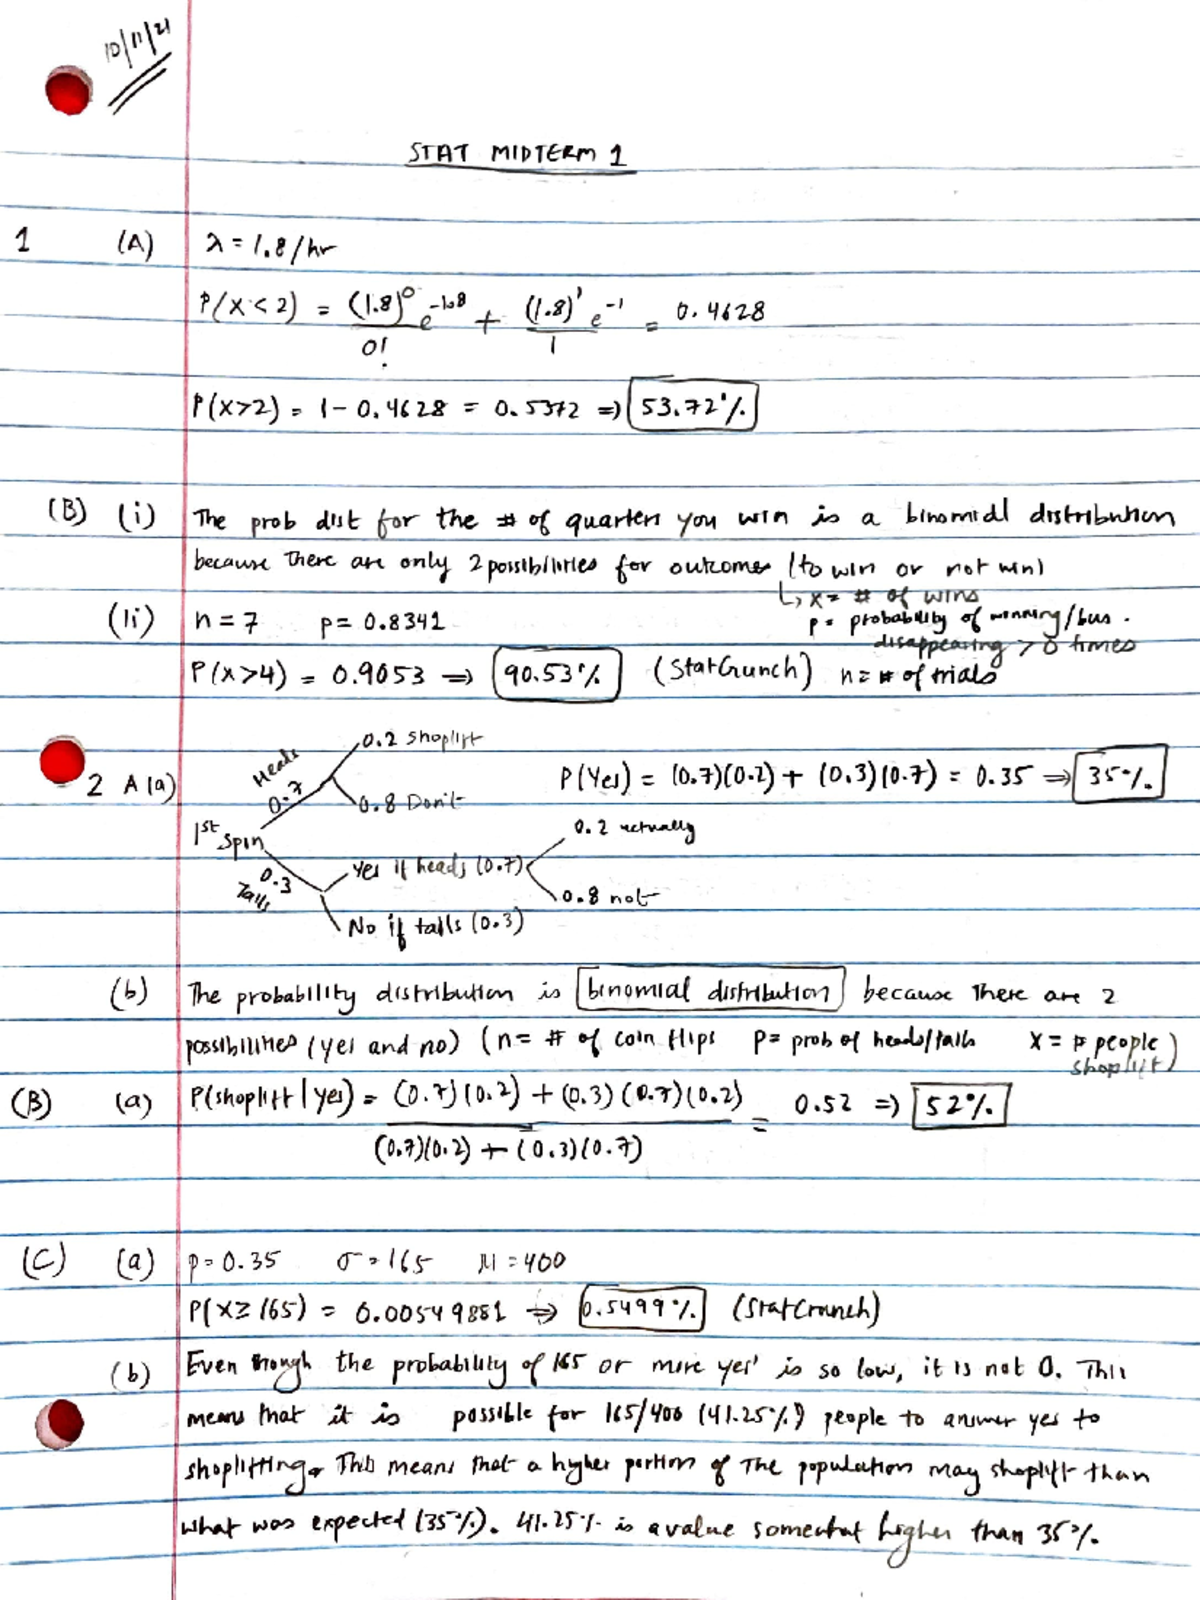 10/11/21
STAT MIDTERM 1
1 (A) λ = 1.8/hr
P(X < 2) = (1.8)⁰ e^-1.8 / 0! + (1.8)' e^-1 / 1 = 0.4628
P(X>2) = 1 - 0.4628 = 0.5372 => 53.72%
(B) (i) The prob dist for the # of quarters you win is a binomial distribution
because there are only 2 possibilities for outcomes (to win or not win)
↳ X = # of wins
(ii) n = 7 p = 0.8341 p = probability of winning/bus.
disappearing > 0 times
P(X>4) = 0.9053 => 90.53% (StatCrunch) n = # of trials
2 A (a) Heads 0.7 0.2 Shoplift
0.8 Don't
P(Yes) = (0.7)(0.2) + (0.3)(0.7) = 0.35 => 35%
1st spin
0.2 actually
0.3 Tails Yes if heads (0.7)
0.8 not
No if tails (0.3)
(b) The probability distribution is binomial distribution because there are 2
possibilities (yes and no) (n = # of coin flips p = prob of heads/tails X = # people
shoplift)
(B) (a) P(shoplift | yes) = (0.7)(0.2) + (0.3)(0.7)(0.2) / (0.7)(0.2) + (0.3)(0.7) = 0.52 => 52%
(C) (a) p = 0.35 σ = 165 μ = 400
P(X ≥ 165) = 0.00549881 => 0.5499% (StatCrunch)
(b) Even though the probability of 165 or more yes' is so low, it is not 0. This
means that it is possible for 165/400 (41.25%) people to answer yes to
shoplifting. This means that a higher portion of the population may shoplift than
what was expected (35%). 41.25% is a value somewhat higher than 35%.